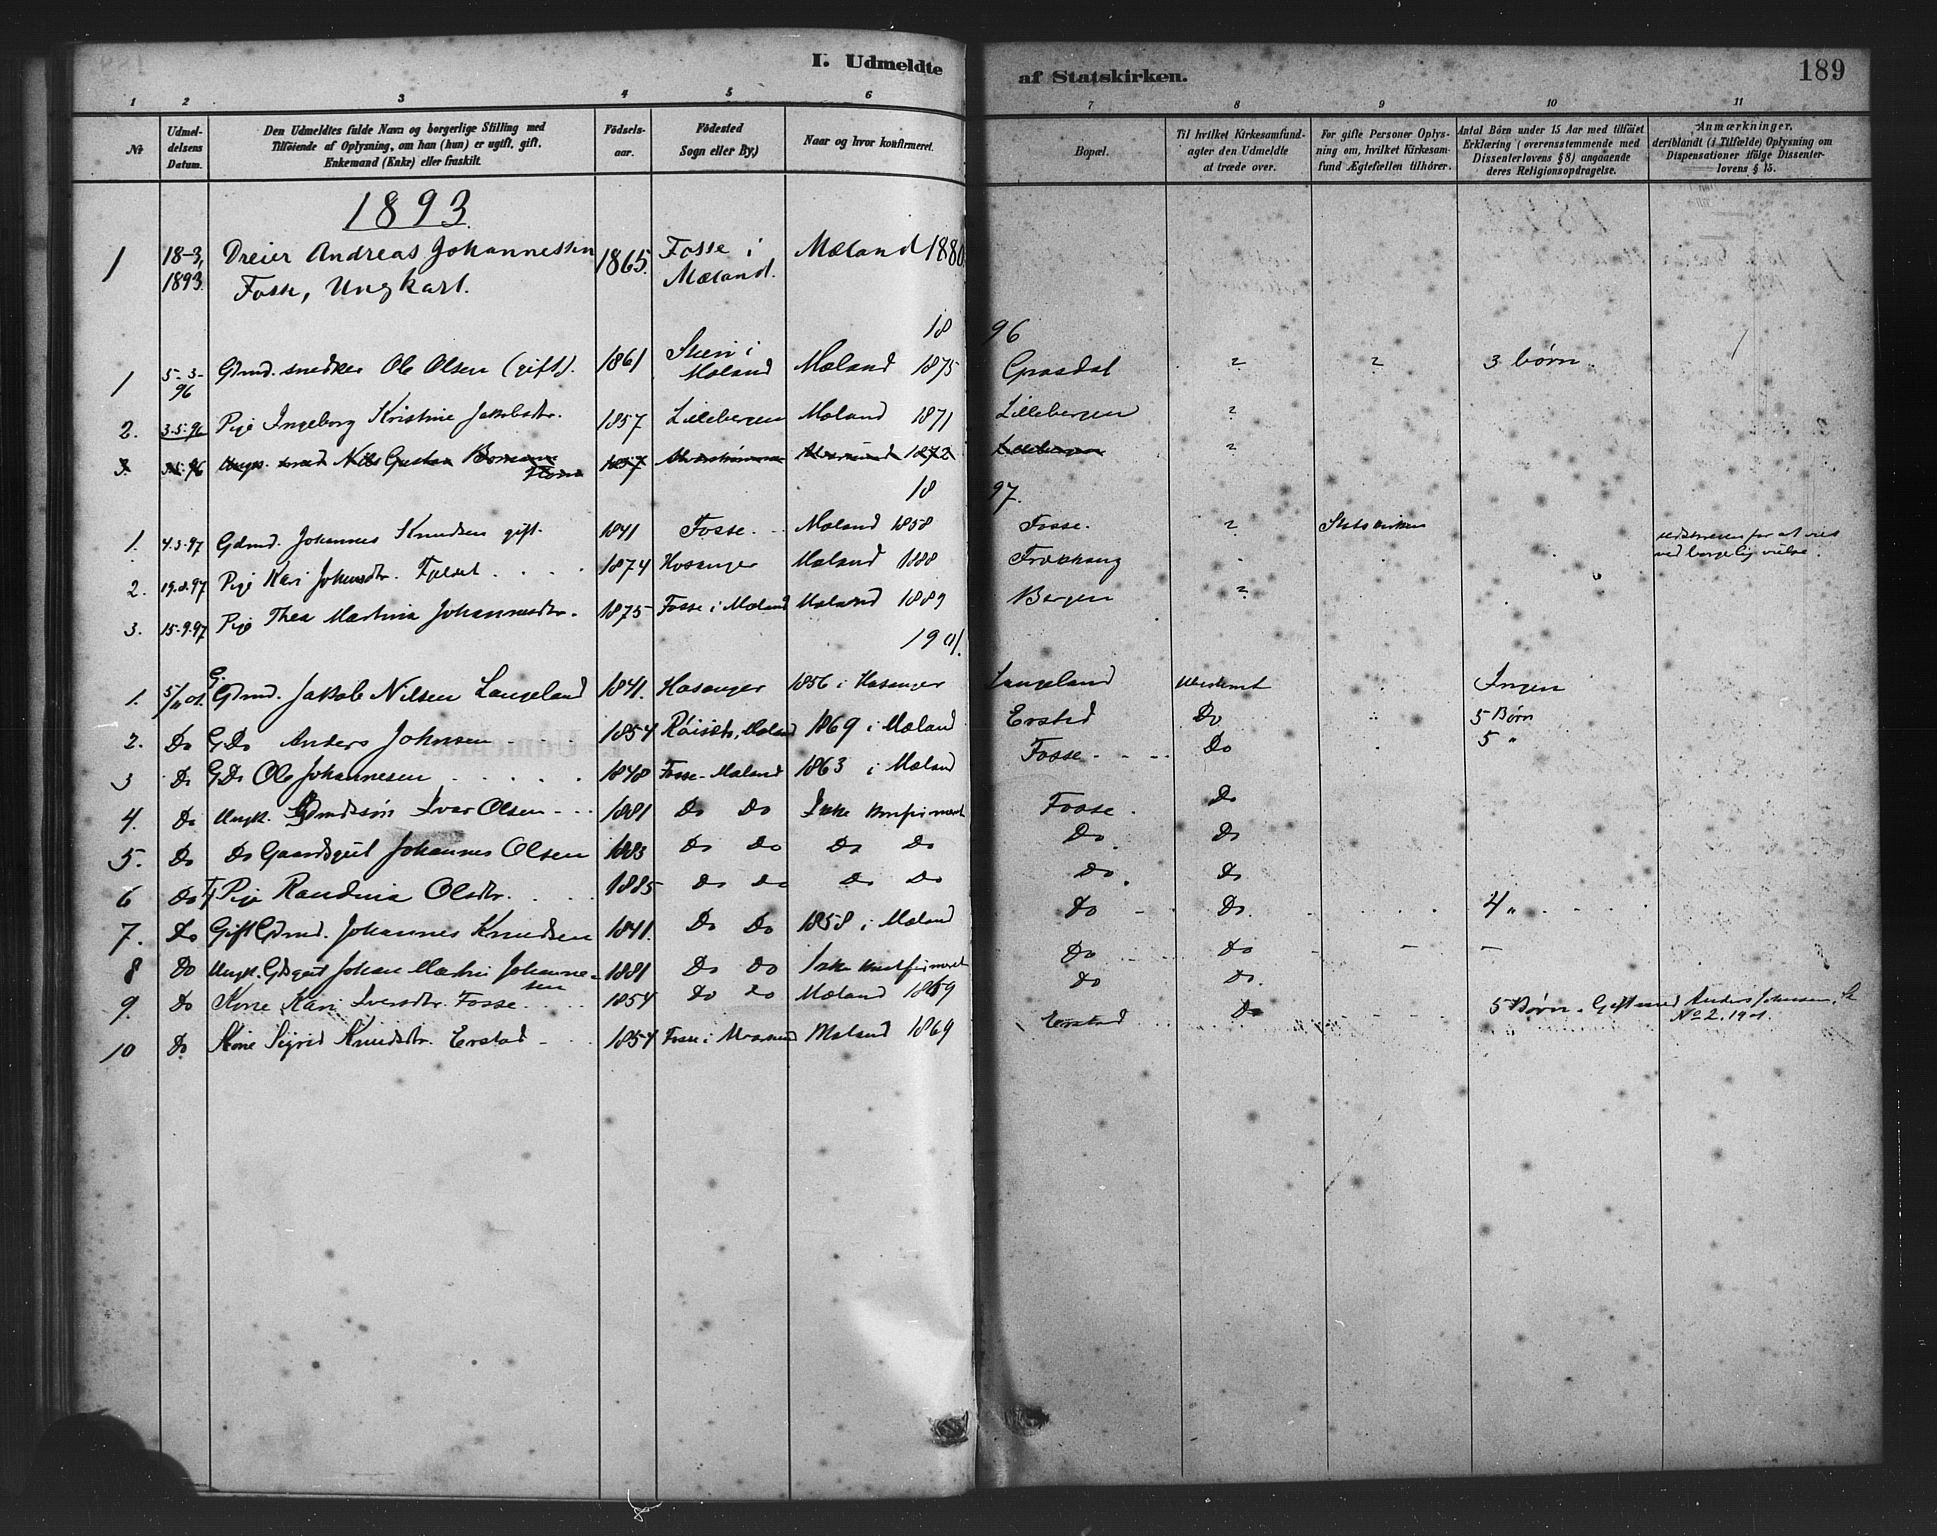 I. Udmeldte af Statskirken. 189
1 2 3 4 5 6 7 8 9 10 11
№ | Udmeldelsens Datum. | Den Udmeldtes fulde Navn og borgerlige Stilling med Tilføiende af Oplysning, om han (hun) er ugift, gift, Enkemand (Enke) eller fraskilt. | Fødselsaar. | Fødested Sogn eller By,) | Naar og hvor konfirmeret. | Bopæl. | Til hvilket Kirkesamfund agter den Udmeldte at træde over. | For gifte Personer Oplysning om, hvilket Kirkesamfund Ægtefællen tilhører. | Antal Børn under 15 Aar med tilføiet Erklæring (overensstemmende med Dissenterlovens § 8) angaaende deres Religionsopdragelse. | Anmærkninger, deriblandt (i Tilfælde) Oplysning om Dispensationer ifølge Dissenterlovens § 15.
1893
1 18-3, 1893. Dreier Andreas Johannessen Fosse, Ungkarl. 1865. Fosse i Mæland. Mæland 1880
18 96
1 5-3-96 Gdmd. snedker Ole Olsen (gift). 1861 i Mæland Mæland 1875 Grasdal ? ? 3 børn.
2. 3-5-96 Pige Ingeborg Kristine Jakobsdtr. 1857 Lillebergen Mæland 1871 Lillebergen ?
3. 3-5-96 Ungk. Nils Gustav 1857 1872 Lillebergen ?
18 97.
1. 4-3-97 Gdmd. Johannes Knudsen gift. 1841 Fosse. Mæland 1858 Fosse. ? Statskirken
for at vies ved borgelig vielse.
2. 19-8-97 Pige Kari Johansdtr. 1874 Hosanger Mæland 1888
3. 15-9-97 Pige Thea Martina Johannesdtr. 1875 Fosse i Mæland Mæland 1889 Bergen ?
1901.
1. 5/11 01. G. Gdmd. Jakob Nilsen Langeland 1841. Hosanger 1856 i Hosanger Langeland Ubestemt Ingen
2. Do G Do Anders Johnsen 1854 Mæland 1869 i Mæland Erstad Do 5 Børn
3 Do G Do Ole Johannesen 1848 Fosse - Mæland 1863 i Mæland Fosse Do 5 "
4. Do Ungk. Gmdssøn Ivar Olsen 1881 Do Do Ikke konfirmeret Fosse. Do
5. Do Do Gaardsgut Johannes Olsen 1883 Do Do Do Do Do Do
6 Do Pige Randina Olsdtr. 1885 Do Do Do Do Do Do
7. Do Gift Gdmd. Johannes Knudsen 1841. Do Do 1858 i Mæland Do Do. 4 "
8 Do Ungk. Gdsgut Johan Martin Johannesen 1881 Do Do Ikke konfirmeret Do Do - -
9. Do Kone Kari Iversdtr. Fosse 1854 Do Do Mæland 1869 Do Do.
10 Do Kone Sigrid Knudsdtr. Erstad 1854 Fosse i Mæland 1869 Erstad Do 5 Børn. Gift med Anders Johnsen, No 2. 1901.